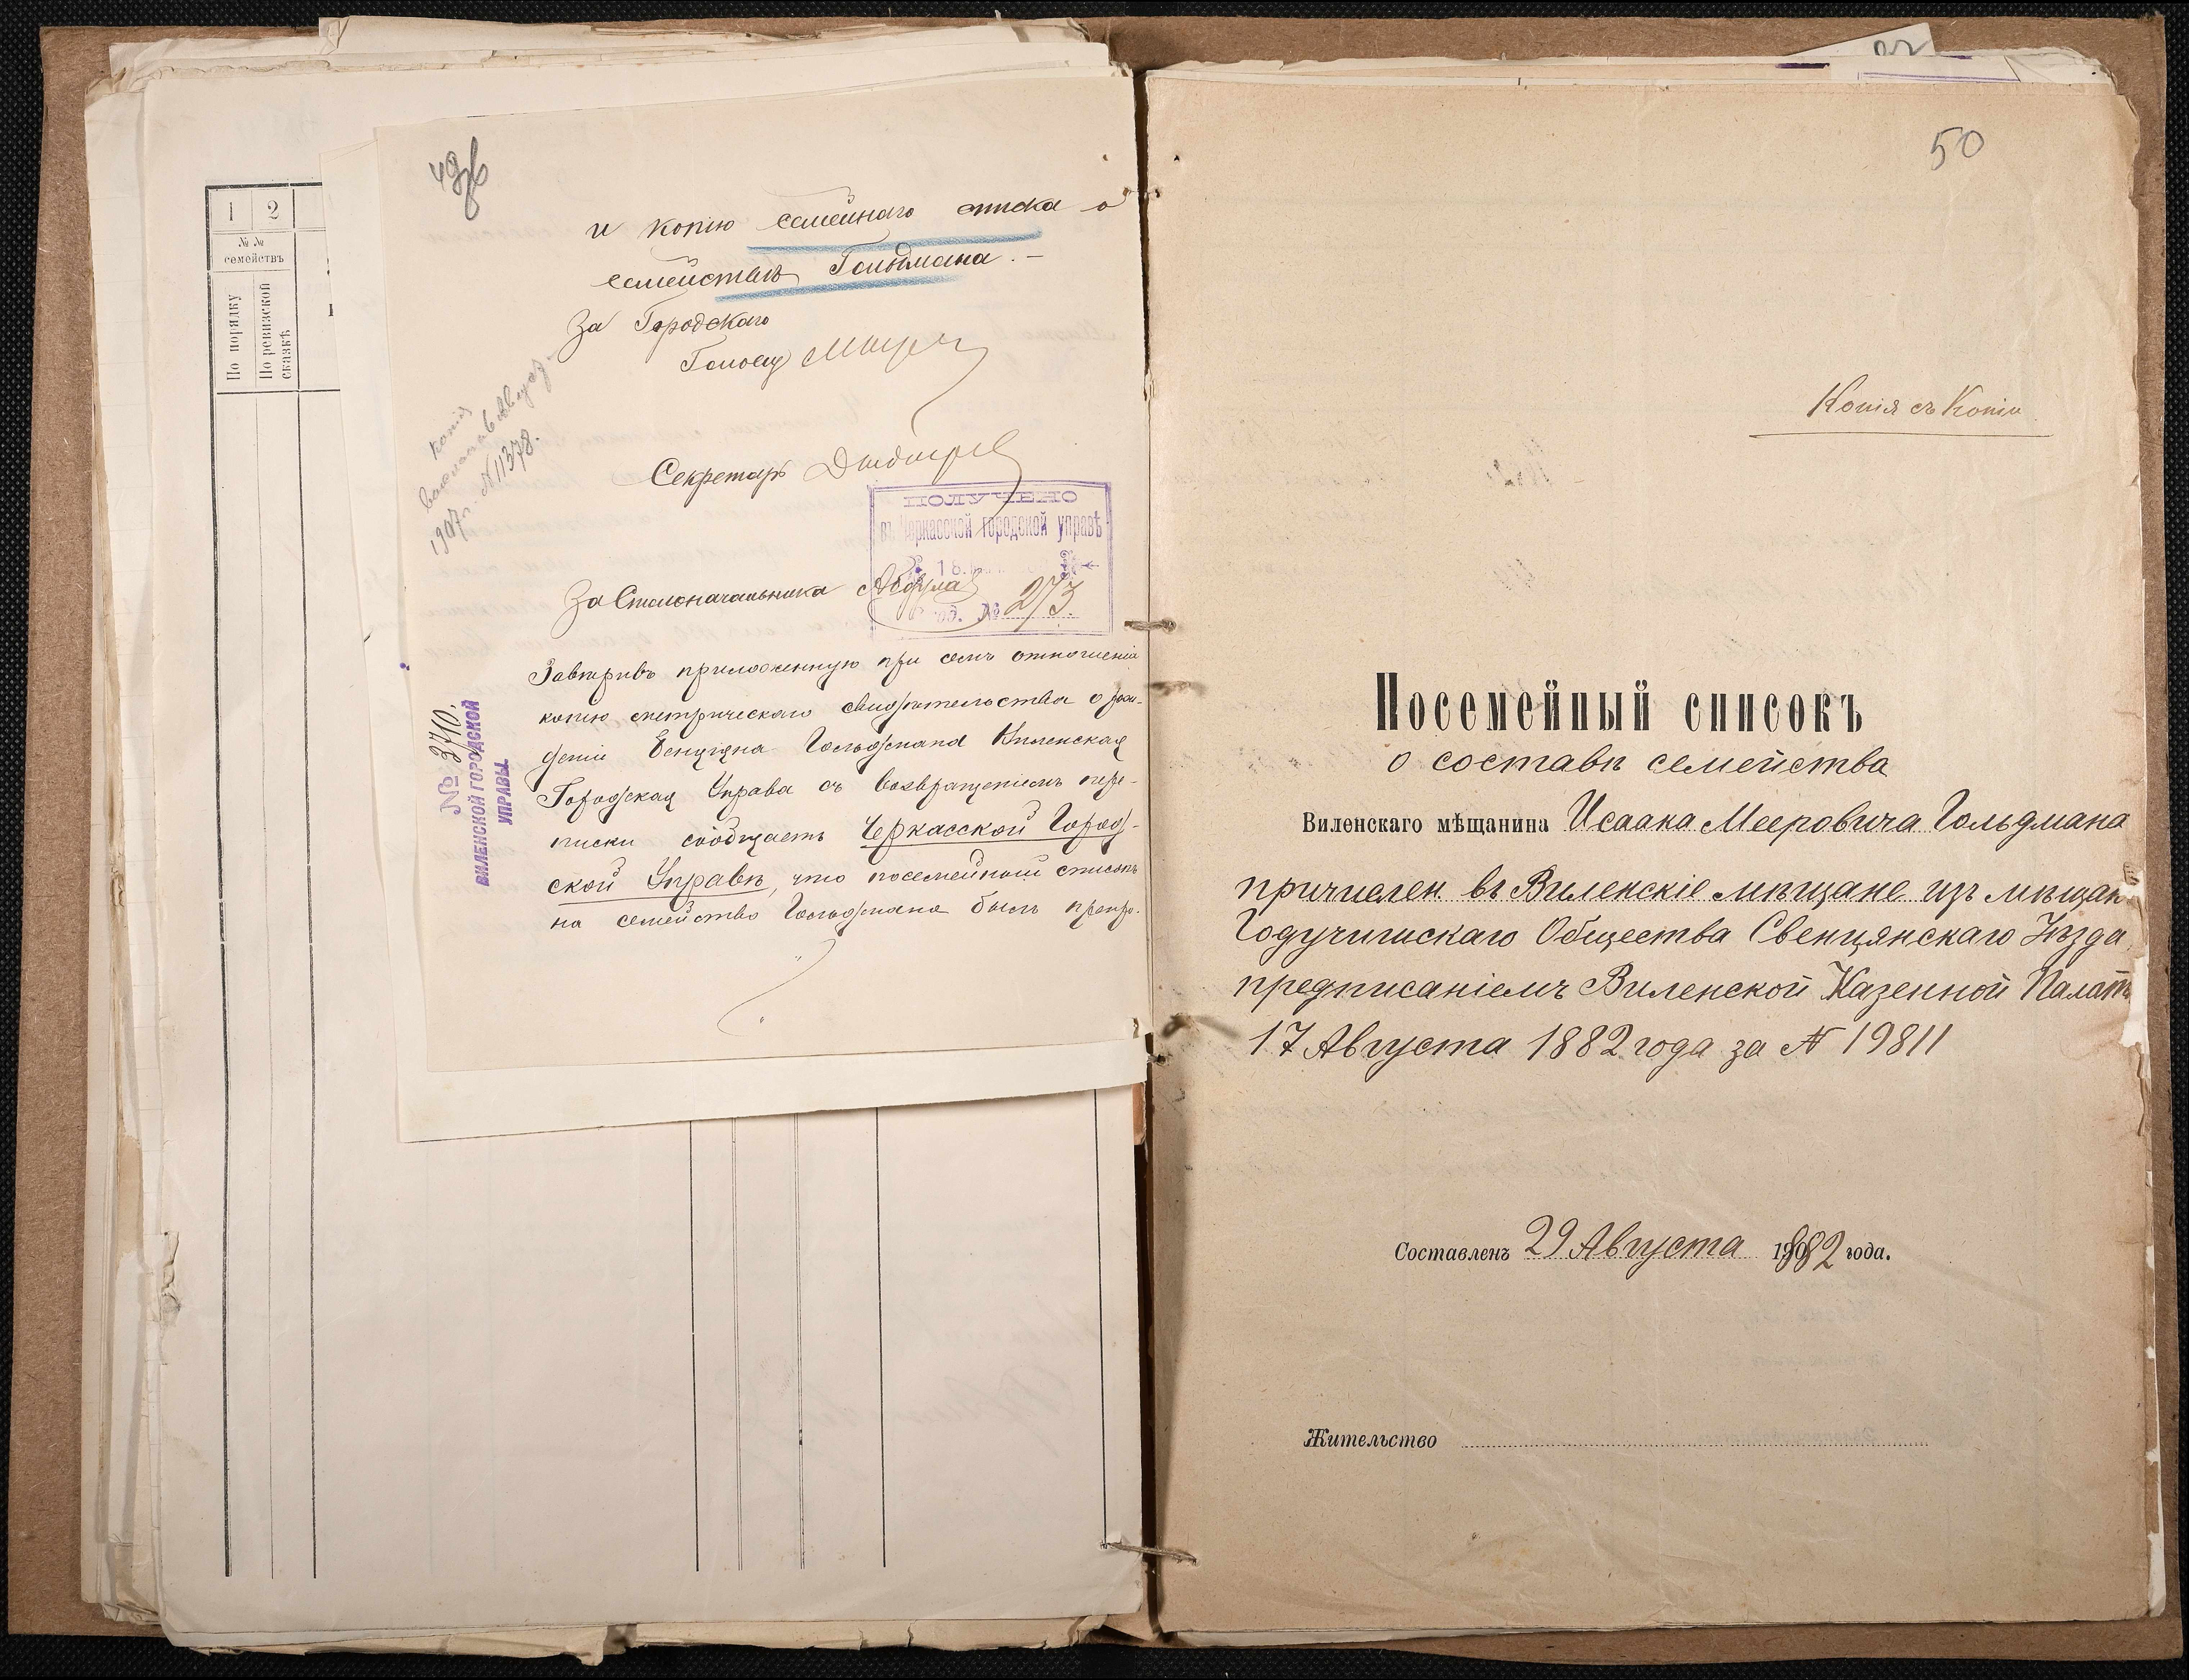 49об
1 2
№ №
семействъ
По порядку
По ревизской
сказкѣ
и копію семейнаго списка о
семействѣ Гольдмана. —
За Городскаго
Голову
Секретарь
ПОЛУЧЕНО
въ Черкасской городской управѣ
18
№ 273
За Столоначальника
копія
1907 г. № 11378.
№ 3710.
ВИЛЕНСКОЙ ГОРОДСКОЙ
УПРАВЫ.
Завѣривъ приложенную при семъ отношеніи
копію метрическаго свидѣтельства о рож-
деніи Бенціяна Гольдмана Виленская
Городская Управа съ возвращеніемъ пере-
писки сообщаетъ Черкасской Город-
ской Управѣ, что посемейный списокъ
на семейство Гольдмана былъ препро-
50
Копія съ Копіи
Посемейный списокъ
о составѣ семейства
Виленскаго мѣщанина Исаака Мееровича Гольдмана
причислен. въ Виленскіе мѣщане изъ мѣщан
Годучишскаго Общества Свенцянскаго Уѣзда
предписаніемъ Виленской Казенной Палаты
17 Августа 1882 года за № 19811
Составленъ 29 Августа 1882 года.
Жительство